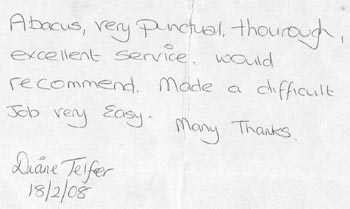 Abacus, very punctual, thourough,
excellent service, would
recommend. Made a difficult
Job very Easy. Many Thanks.
Diane Telfer
18/2/08